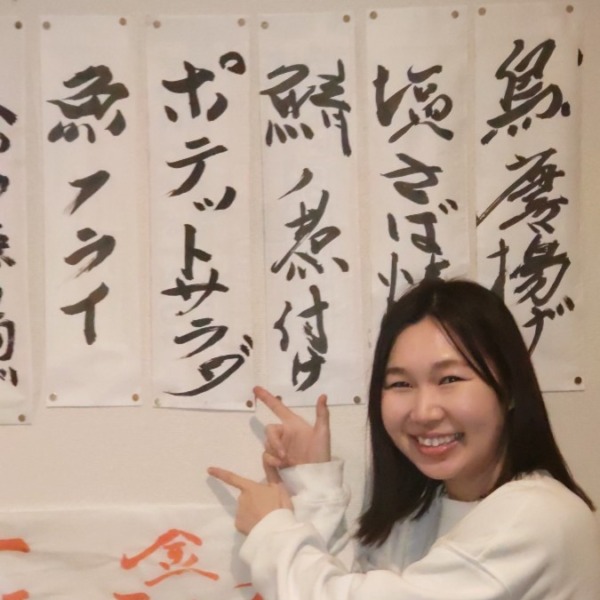 鳥唐揚げ
塩さば焼
鯖ノ煮付け
ポテットサラダ
魚フライ
金